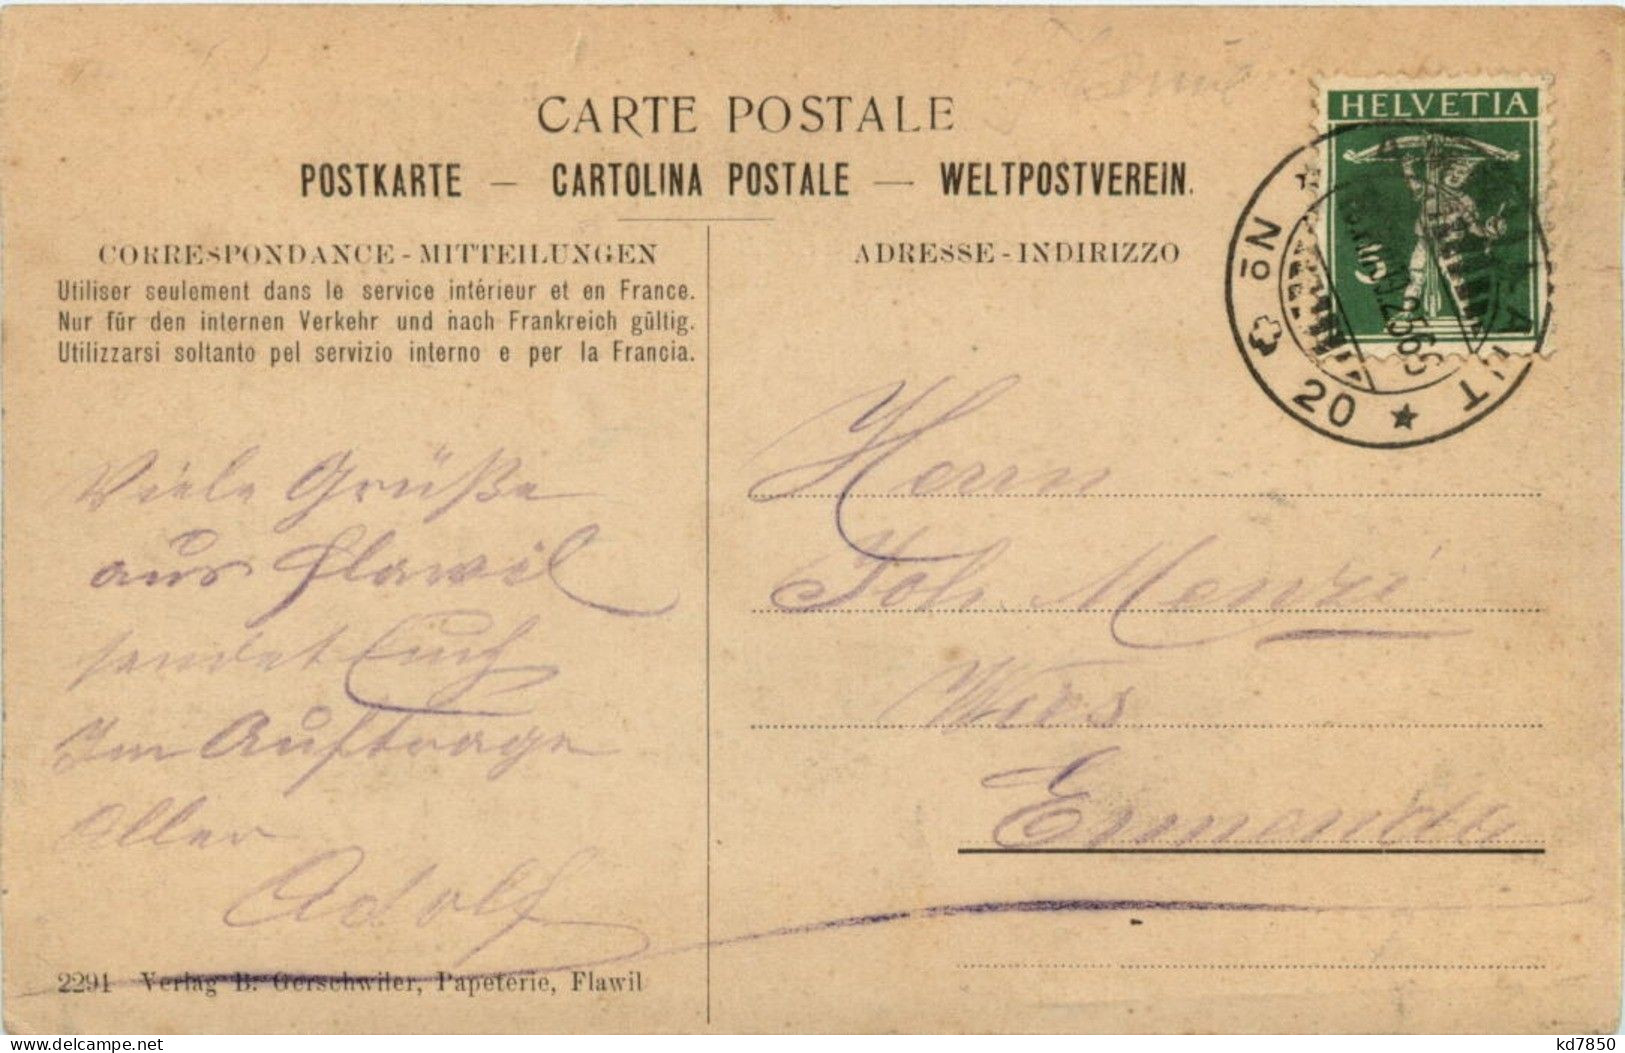 CARTE POSTALE
POSTKARTE — CARTOLINA POSTALE — WELTPOSTVEREIN.
HELVETIA
5
20
CORRESPONDANCE - MITTEILUNGEN
Utiliser seulement dans le service intérieur et en France.
Nur für den internen Verkehr und nach Frankreich gültig.
Utilizzarsi soltanto pel servizio interno e per la Francia.
ADRESSE - INDIRIZZO
Viele Grüße
aus Flawil
sendet Euch
Im Auftrage
Aller
Adolf
Herrn
Joh. Menzi
Ennenda
2291 Verlag B. Gerschwiler, Papeterie, Flawil
kd7850